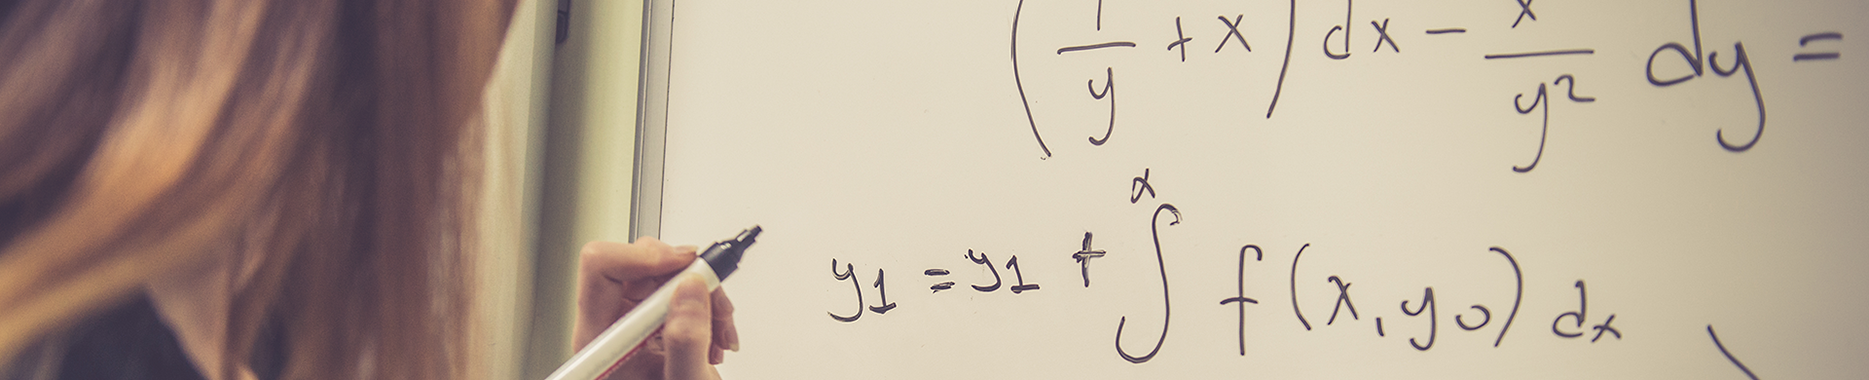 (1/y + x) dx - x/y² dy =
y1 = y1 + ∫^x f(x, y0) dx